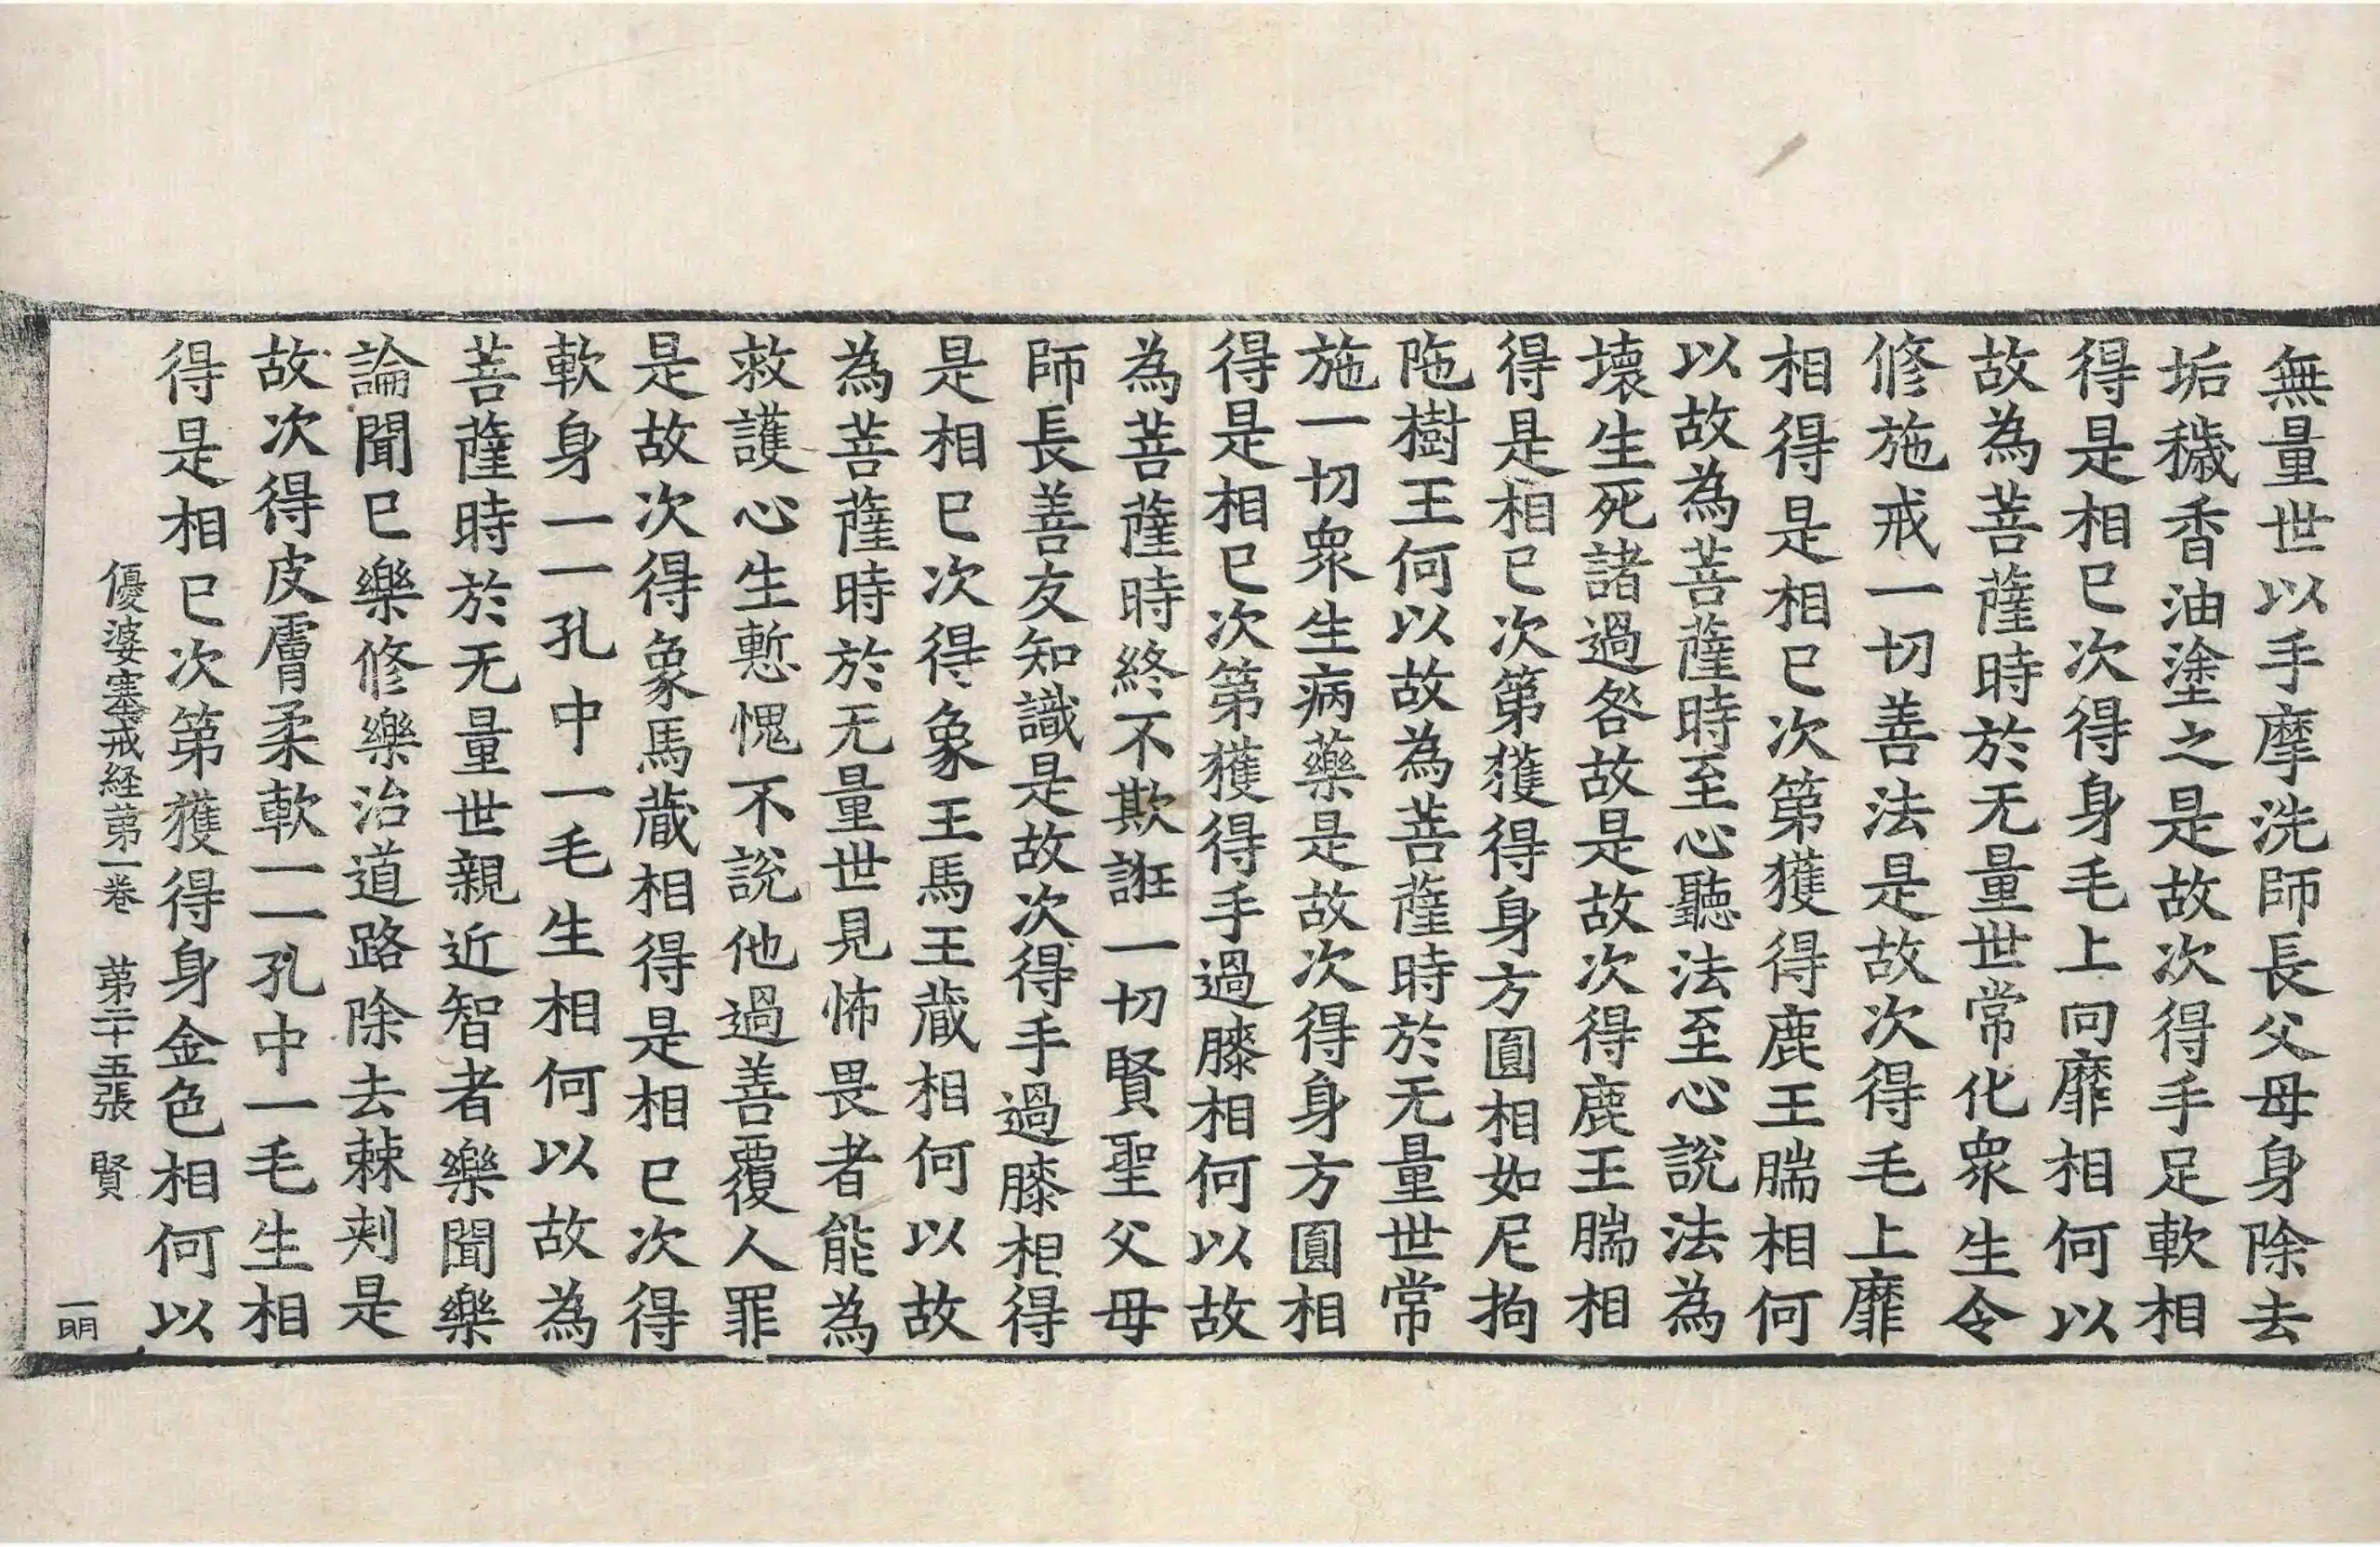 無量世以手摩洗師長父母身除去
垢穢香油塗之是故次得手足軟相
得是相已次得身毛上向靡相何以
故為菩薩時於无量世常化衆生令
修施戒一切善法是故次得毛上靡
相得是相已次第獲得鹿王腨相何
以故為菩薩時至心聽法至心說法為
壞生死諸過咎故是故次得鹿王腨相
得是相已次第獲得身方圓相如尼拘
陁樹王何以故為菩薩時於无量世常
施一切衆生病藥是故次得身方圓相
得是相已次第獲得手過膝相何以故
為菩薩時終不欺誑一切賢聖父母
師長善友知識是故次得手過膝相得
是相已次得象王馬王藏相何以故
為菩薩時於无量世見怖畏者能為
救護心生慙愧不說他過善覆人罪
是故次得象馬藏相得是相已次得
軟身一一孔中一毛生相何以故為
菩薩時於无量世親近智者樂聞樂
論聞已樂修樂治道路除去棘刾是
故次得皮膚柔軟一一孔中一毛生相
得是相已次第獲得身金色相何以
優婆塞戒経第一卷 第二十五張 賢
一明